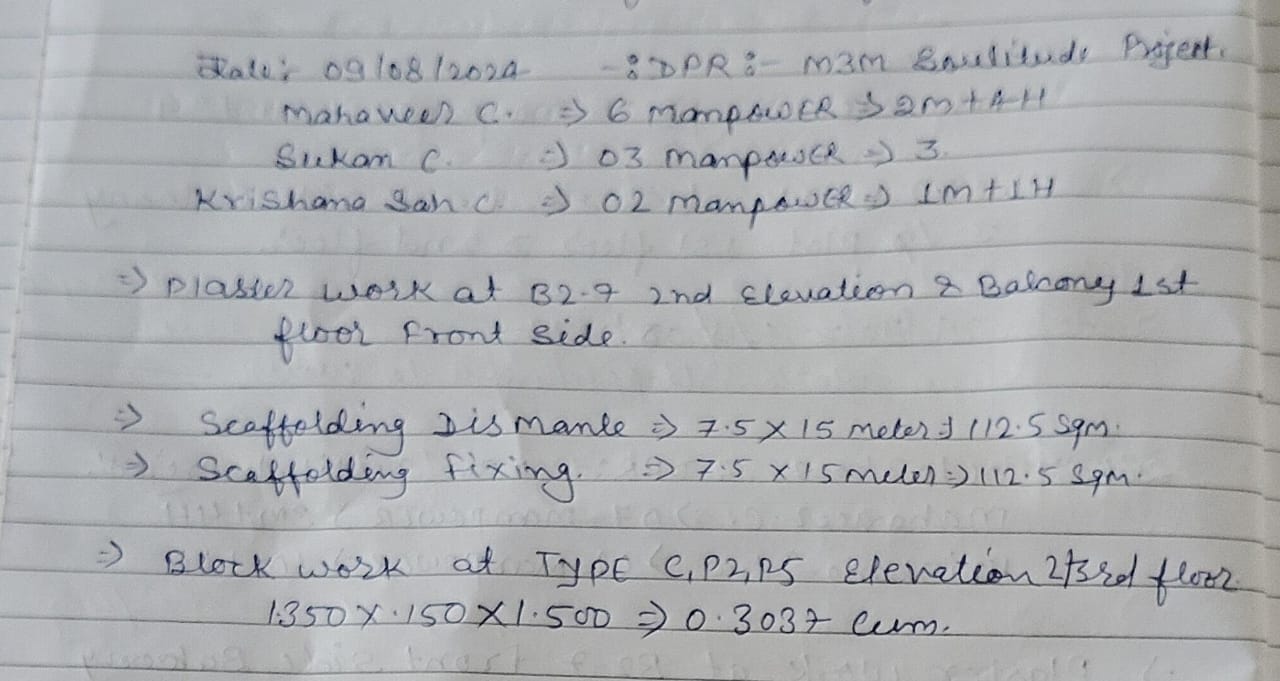 Date: 09/08/2024 -: DPR :- M3M Soulitude Project.
Mahaveer C. => 6 Manpower => 2M+4H
Sukam C. => 03 Manpower => 3.
Krishana Sah C. => 02 Manpower => 1M+1H
=> Plaster work at B2-7 2nd Elevation & Balcony 1st
floor Front Side.
=> Scaffolding Dismante => 7.5 X 15 meter => 112.5 Sqm.
=> Scaffolding fixing. => 7.5 X 15 meter => 112.5 Sqm.
=> Block work at TYPE C, P2, P5 Elevation 2/3rd floor.
1.350 X .150 X 1.500 => 0.3037 Cum.